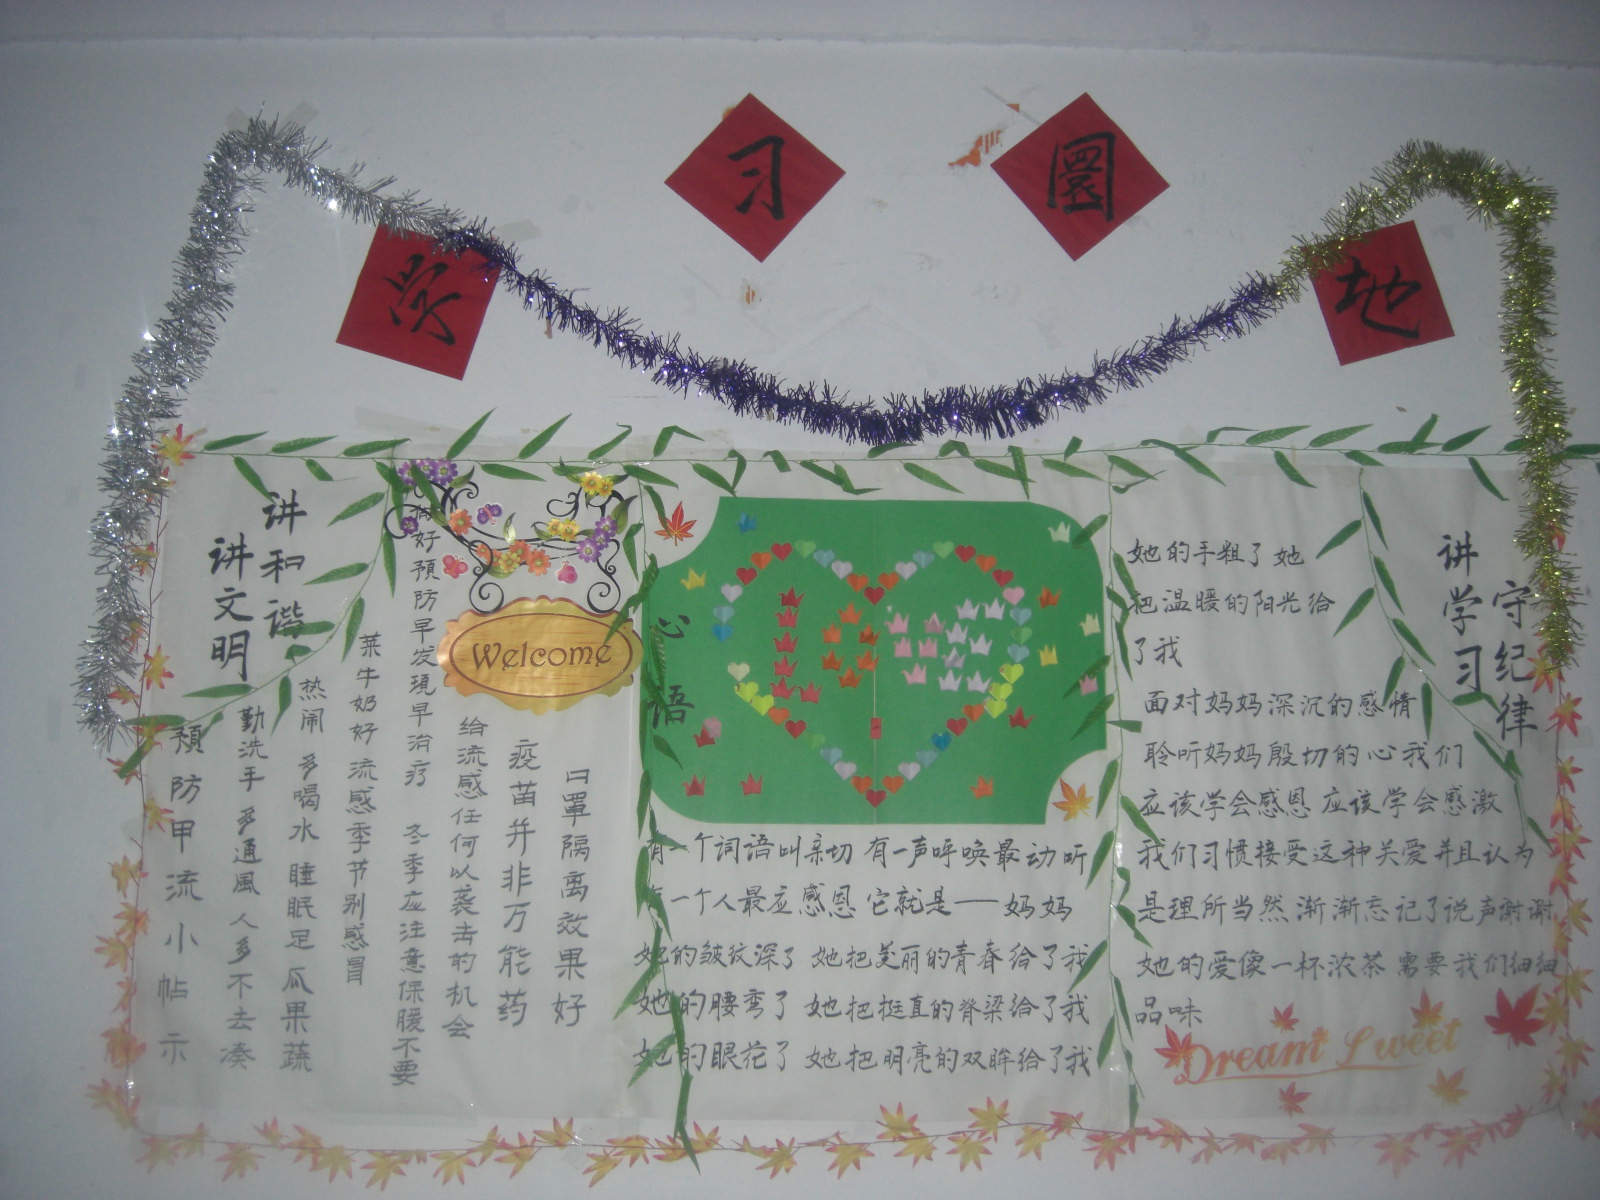 学习園地
讲和谐
讲文明
預防甲流小帖示
勤洗手 多通風 人多不去凑
热闹 多喝水 睡眠足 瓜果蔬
菜牛奶好 流感季节别感冒
好預防早发現早治疗 冬季应注意保暖不要
给流感任何以袭击的机会
疫苗并非万能药
口罩隔离效果好
Welcome
心语
有一个词语叫亲切 有一声呼唤最动听
有一个人最应感恩 它就是——妈妈
她的皱纹深了 她把美丽的青春给了我
她的腰弯了 她把挺直的脊梁给了我
她的眼花了 她把明亮的双眸给了我
她的手粗了 她
把温暖的阳光给
了我
面对妈妈深沉的感情
聆听妈妈殷切的心我们
应该学会感恩 应该学会感激
我们习惯接受这种关爱并且认为
是理所当然 渐渐忘记了说声谢谢
她的爱像一杯浓茶 需要我们细细
品味
讲学习
守纪律
Dream Sweet